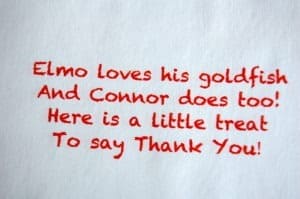 Elmo loves his goldfish
And Connor does too!
Here is a little treat
To say Thank You!